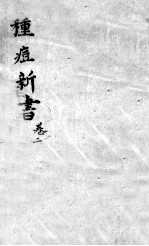 種痘新書
卷二